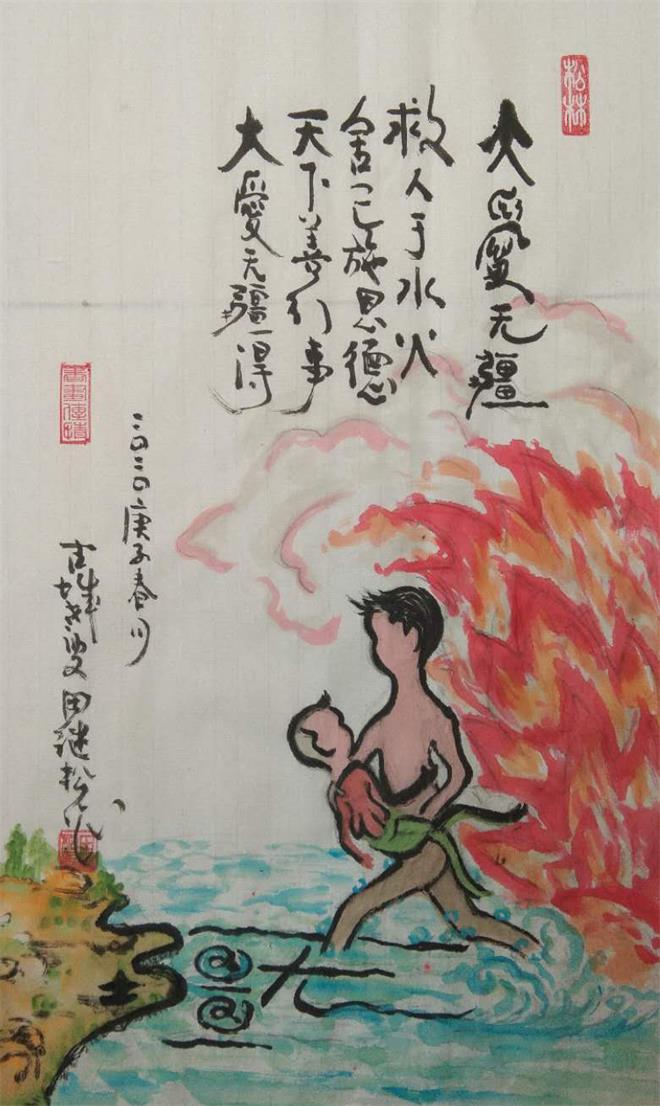 松林
大愛无疆
救人于水火
舍己施恩德
天下善行事
大愛无疆得
書畫傳情
二〇二〇庚子春月
古城老叟田继松作